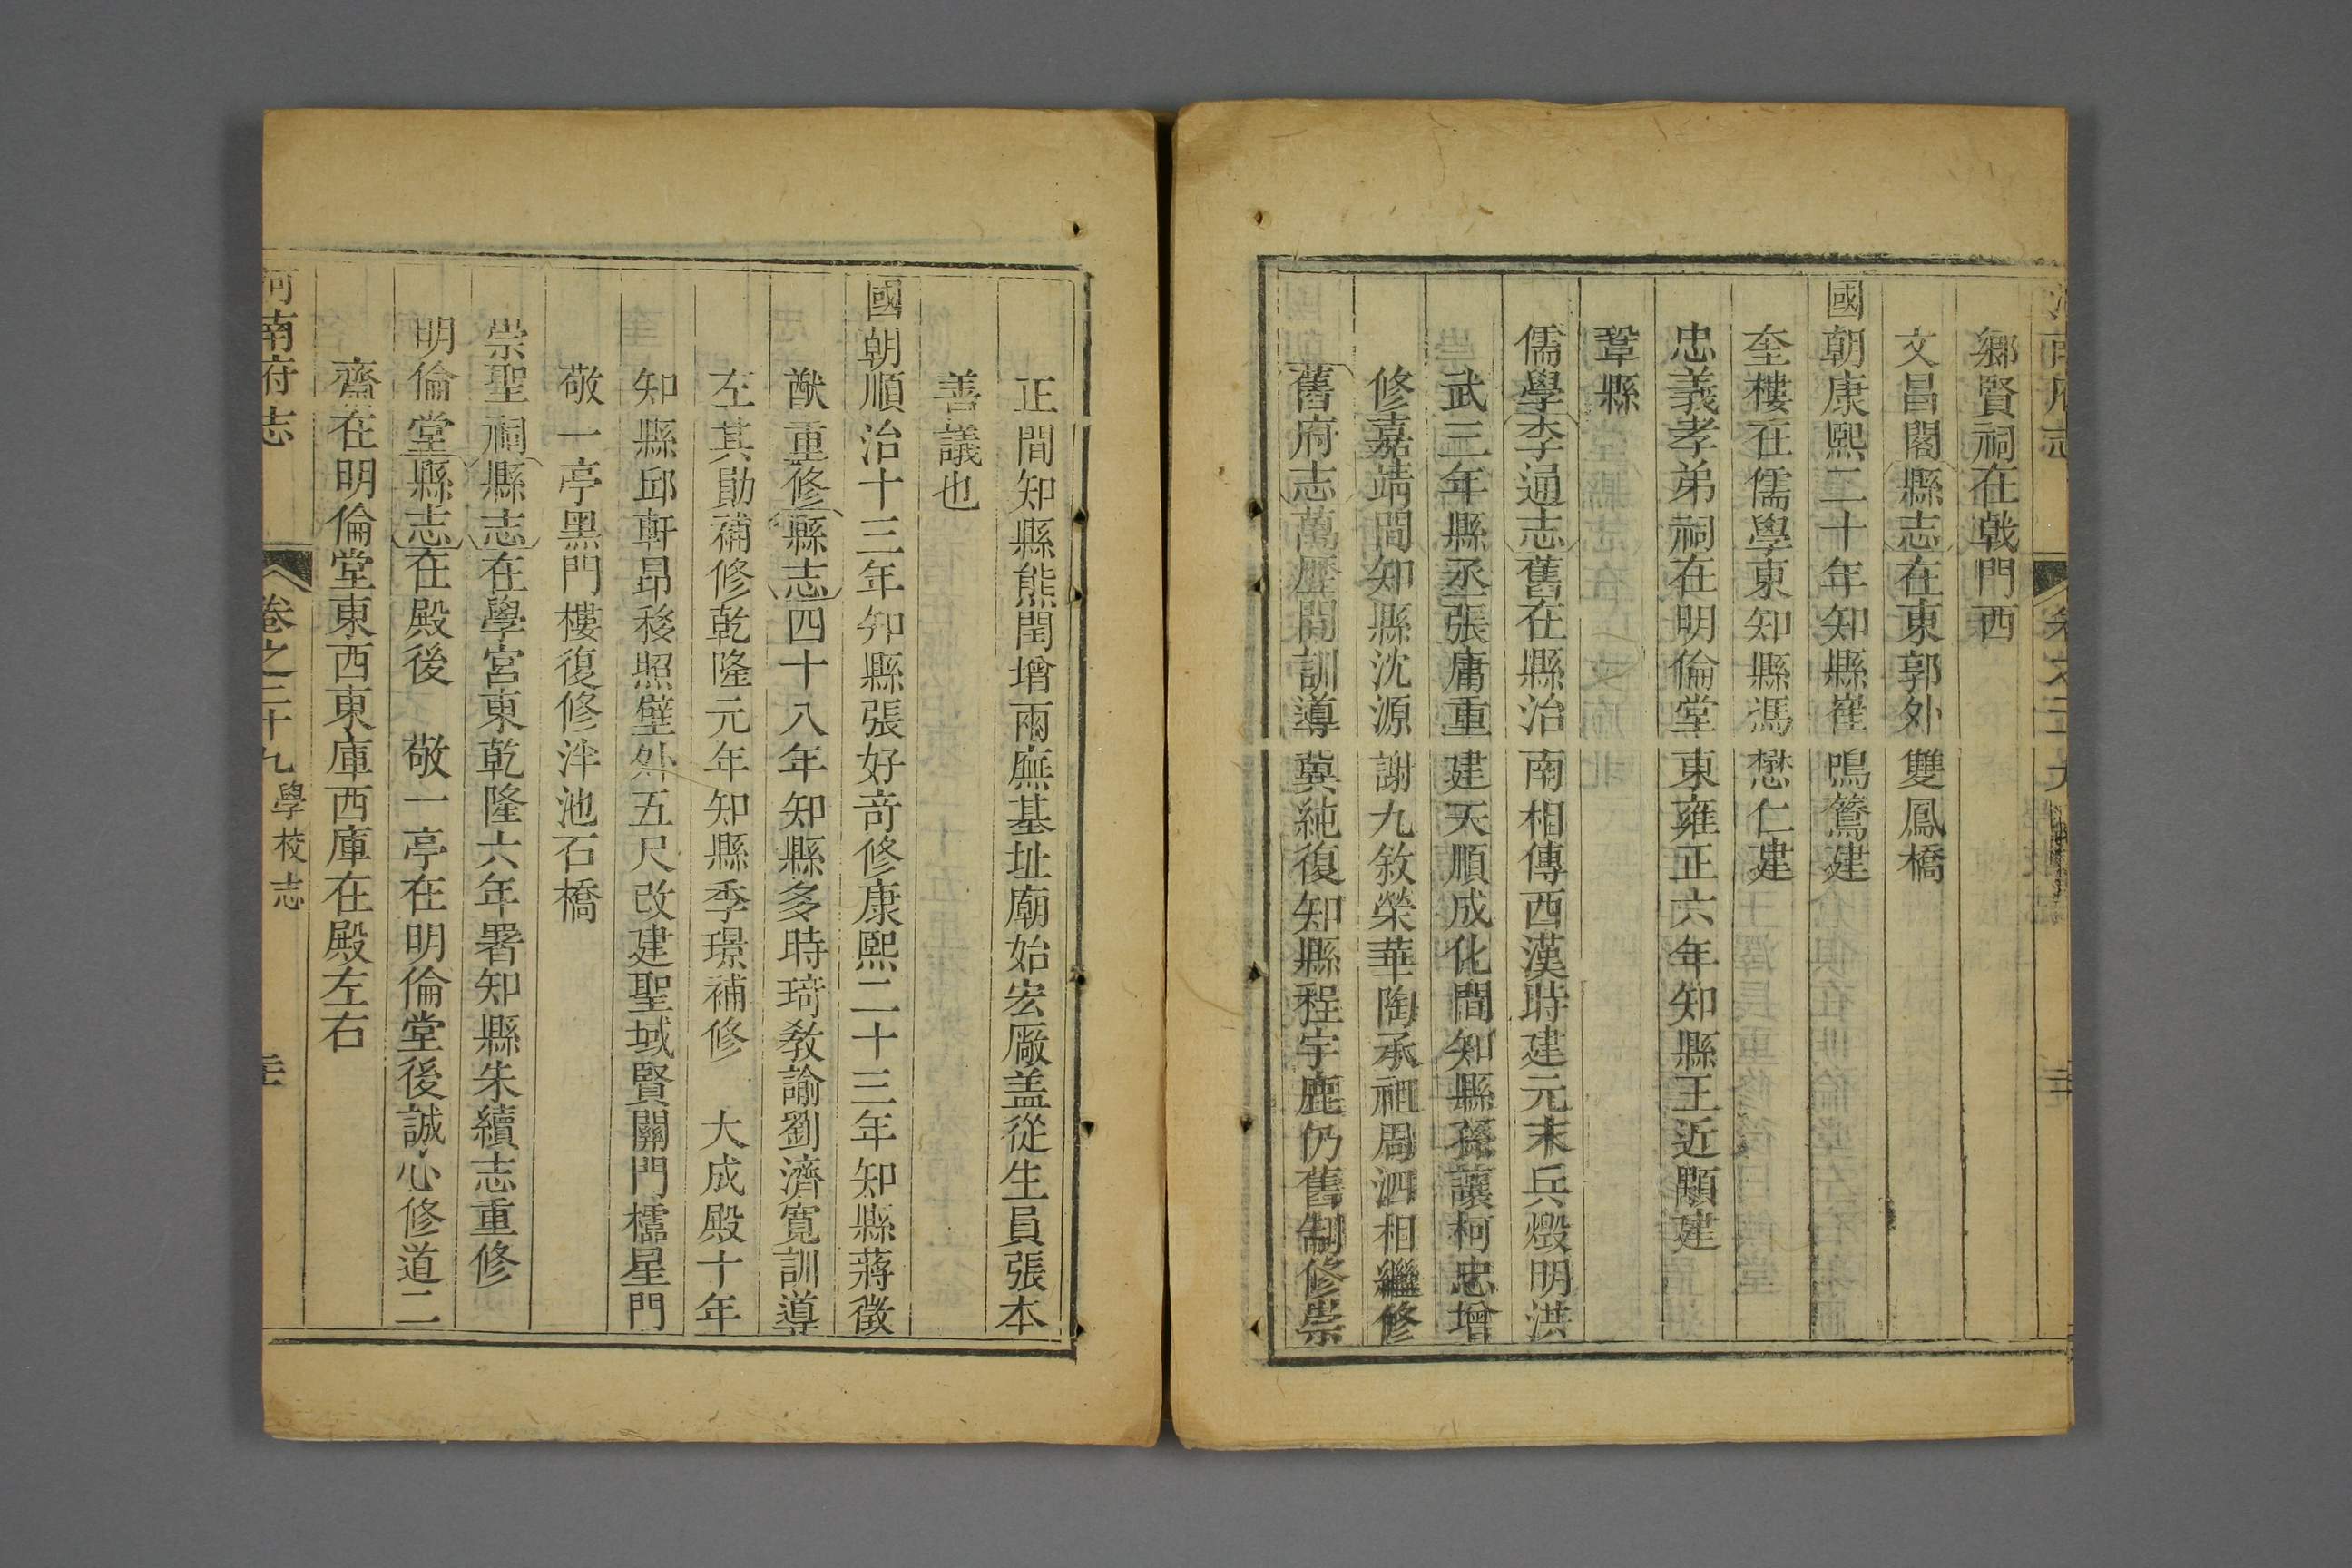 鄉賢祠在戟門西
文昌閣縣志在東郭外雙鳳橋
國朝康熙二十年知縣崔鳴鷟建
奎樓在儒學東知縣馮懋仁建
忠義孝弟祠在明倫堂東雍正六年知縣王近顒建
鞏縣
儒學李通志舊在縣治南相傳西漢時建元末兵燬明洪
武三年縣丞張庸重建天順成化間知縣孫讓柯忠增
修嘉靖間知縣沈源謝九敘榮華陶承祖周泗相繼修
舊府志萬歷間訓導冀純復知縣程宇鹿仍舊制修崇
正間知縣熊閏增兩廡基址廟始宏厰盖從生員張本
善議也
國朝順治十三年知縣張好竒修康熙二十三年知縣蔣徵
猷重修縣志四十八年知縣多時琦敎諭劉濟寬訓導
左其勛補修乾隆元年知縣季璟補修　大成殿十年
知縣邱軒昂移照壁外五尺改建聖域賢關門櫺星門
敬一亭黑門樓復修泮池石橋
崇聖祠縣志在學宮東乾隆六年署知縣朱續志重修
明倫堂縣志在殿後　敬一亭在明倫堂後誠心修道二
齋在明倫堂東西東庫西庫在殿左右
河南府志　卷之二十九學校志